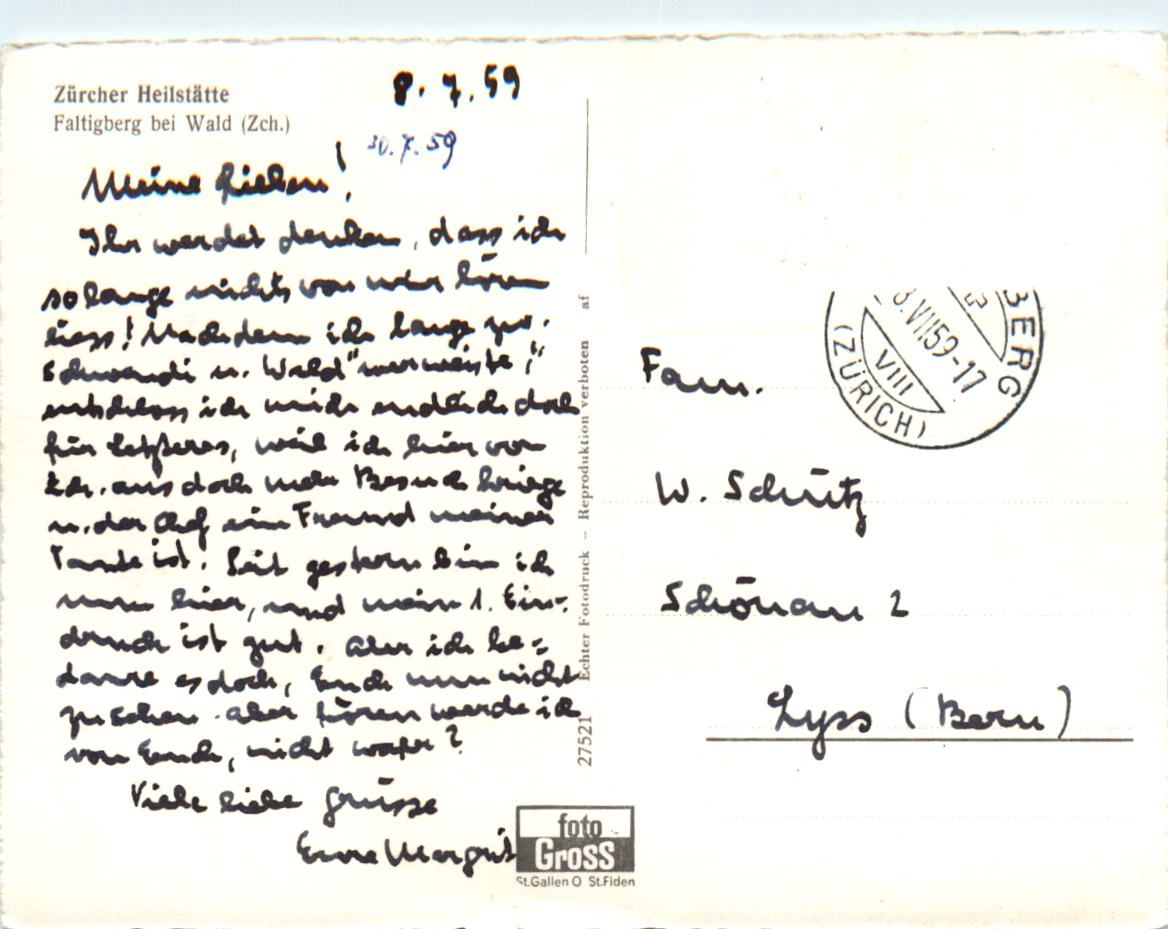 Zürcher Heilstätte
Faltigberg bei Wald (Zch.)
8. 7. 59
30.7.59
Meine Lieben!
Ihr werdet denken, dass ich
so lange nichts von mir hören
liess! Nachdem ich lange zw.
Schwendi u. Wald "werweiste",
entschloss ich mich endlich doch
für letzteres, weil ich hier von
Zch. aus doch mehr Besuch kriege
u. der Chef ein Freund meiner
Tante ist. Seit gestern bin ich
nun hier, und mein 1. Ein-
druck ist gut. Aber ich be-
daure es doch, Euch nun nicht
zu sehen. Aber hören werde ich
von Euch, nicht wahr?
Viele liebe Grüsse
Eure Margrit
27521 Echter Fotodruck – Reproduktion verboten af
foto
Gross
St.Gallen O St.Fiden
BERG
8.VII59-17
VIII
(ZÜRICH)
Fam.
W. Schütz
Schönau 2
Lyss (Bern)